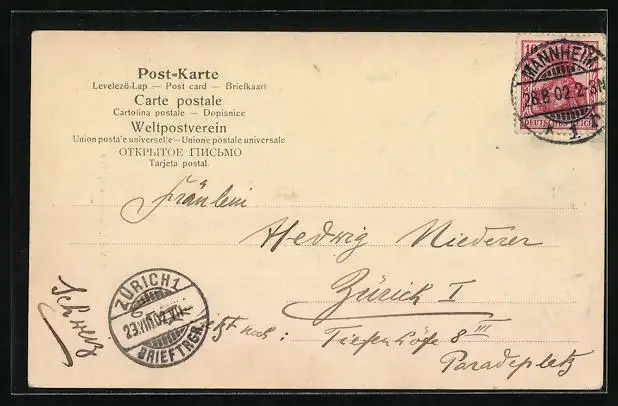 Post-Karte
Levelező-Lap — Post card — Briefkaart
Carte postale
Cartolina postale — Dopisnice
Weltpostverein
Union postale universelle — Unione postale universale
ОТКРЫТОЕ ПИСЬМО
Tarjeta postal.
10
MANNHEIM
28.8.02.2-3N
DEUTSCHES REICH
1.
Fräulein
Hedwig Niederer
Zürich I
Tiefenhöfe 8 III
Paradeplatz
Schweiz
ZÜRICH 1
29.VIII.02.VII
BRIEFTRGR.